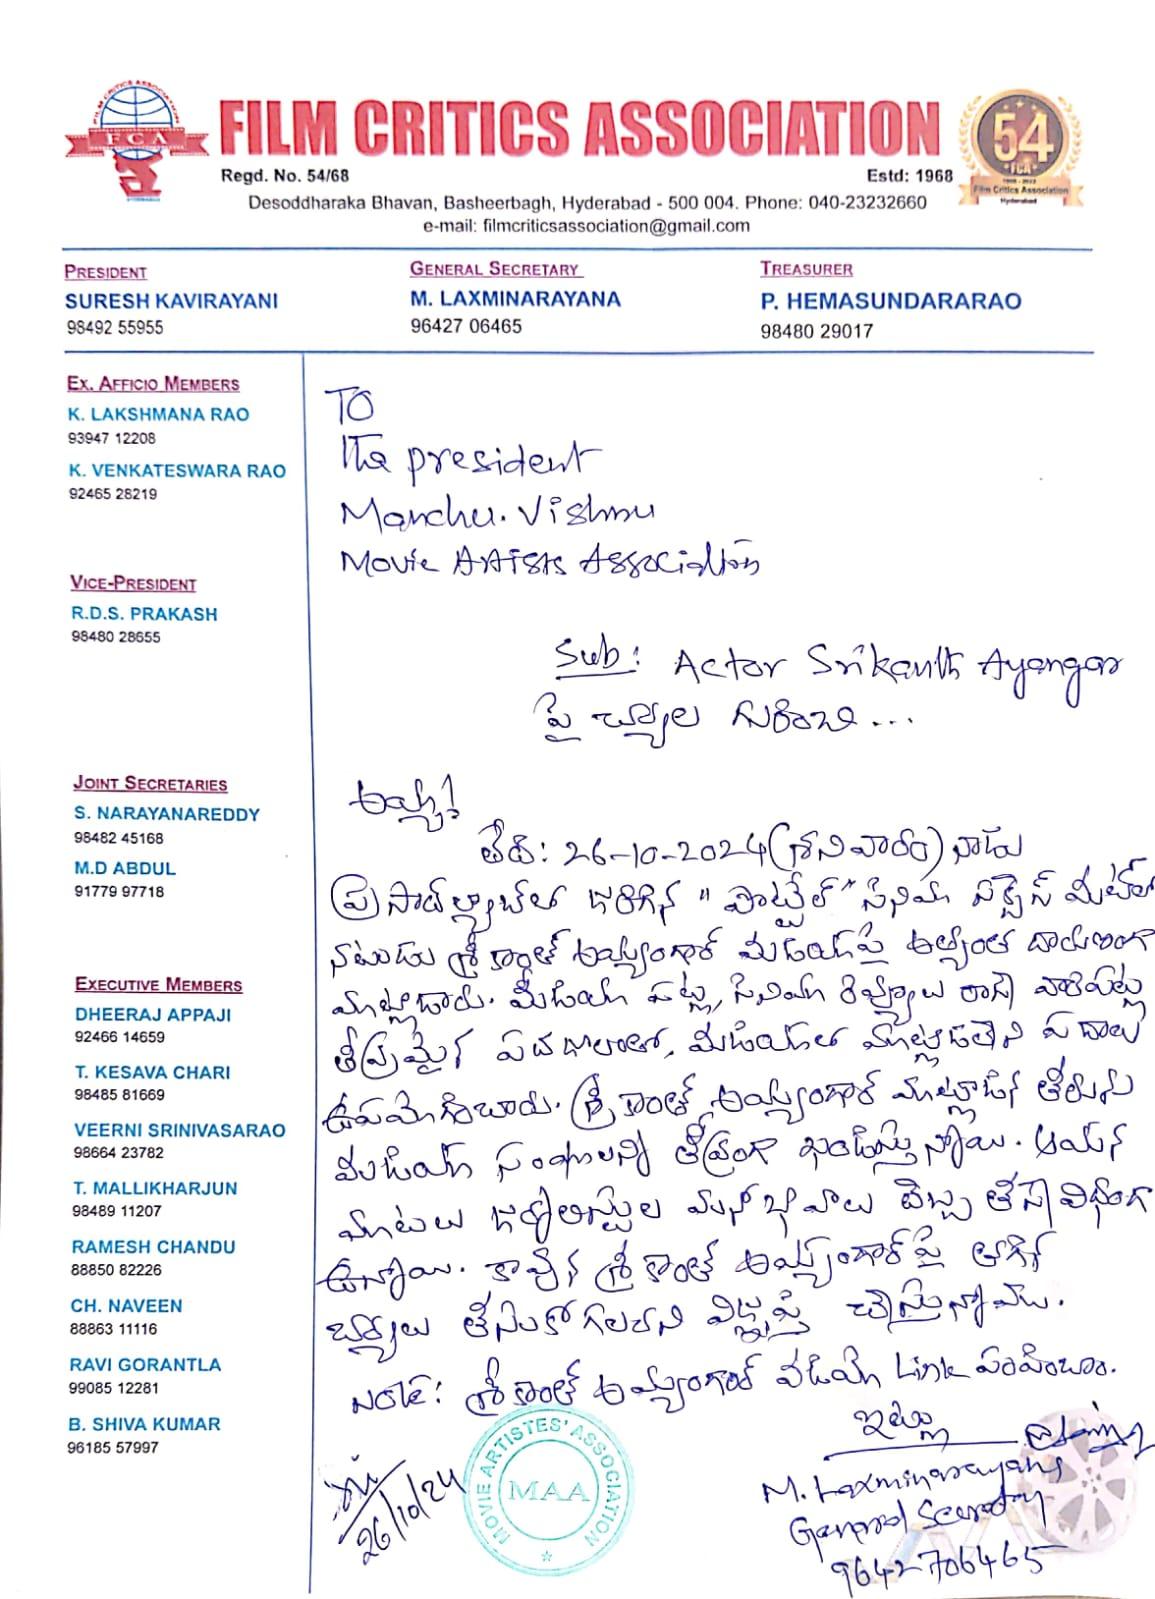 FILM CRITICS ASSOCIATION
FILM CRITICS ASSOCIATION
FCA
54
FCA
Film Critics Association
Hyderabad
Regd. No. 54/68
Estd: 1968
Desoddharaka Bhavan, Basheerbagh, Hyderabad - 500 004. Phone: 040-23232660
e-mail: filmcriticsassociation@gmail.com
PRESIDENT
SURESH KAVIRAYANI
98492 55955
GENERAL SECRETARY
M. LAXMINARAYANA
96427 06465
TREASURER
P. HEMASUNDARARAO
98480 29017
EX. AFFICIO MEMBERS
K. LAKSHMANA RAO
93947 12208
K. VENKATESWARA RAO
92465 28219
VICE-PRESIDENT
R.D.S. PRAKASH
98480 28655
JOINT SECRETARIES
S. NARAYANAREDDY
98482 45168
M.D ABDUL
91779 97718
EXECUTIVE MEMBERS
DHEERAJ APPAJI
92466 14659
T. KESAVA CHARI
98485 81669
VEERNI SRINIVASARAO
98664 23782
T. MALLIKHARJUN
98489 11207
RAMESH CHANDU
88850 82226
CH. NAVEEN
88863 11116
RAVI GORANTLA
99085 12281
B. SHIVA KUMAR
96185 57997
TO
The president
Manchu. Vishnu
Movie Artists Association
Sub: Actor Srikanth Ayangar
పై చర్యల గురించి...
అయ్యా!
తేది: 26-10-2024 (శనివారం) నాడు
ప్రసాద్ ల్యాబ్ లో జరిగిన "పొట్టేల్" సినిమా సక్సెస్ మీట్ లో
నటుడు శ్రీకాంత్ అయ్యంగార్ మీడియాపై అత్యంత దారుణంగా
మాట్లాడారు. మీడియా పట్ల, సినిమా రివ్యూలు రాసే వారిపట్ల
తీవ్రమైన పదజాలంతో, మీడియాలో మాట్లాడలేని పదాలు
ఉపయోగించారు. శ్రీకాంత్ అయ్యంగార్ మాట్లాడిన తీరును
మీడియా సంఘాలన్ని తీవ్రంగా ఖండిస్తున్నాయి. ఆయన
మాటలు జర్నలిస్టుల మనోభావాలు దెబ్బ తీసే విధంగా
ఉన్నాయి. కావున శ్రీకాంత్ అయ్యంగార్ పై తగిన
చర్యలు తీసుకోగలరని విజ్ఞప్తి చేస్తున్నాము.
Note: శ్రీకాంత్ అయ్యంగార్ వీడియో Link పంపించాం.
ఇట్లు
M. Laxminarayana
General Secretary
9642706465
26/10/24
MOVIE ARTISTES' ASSOCIATION
MAA